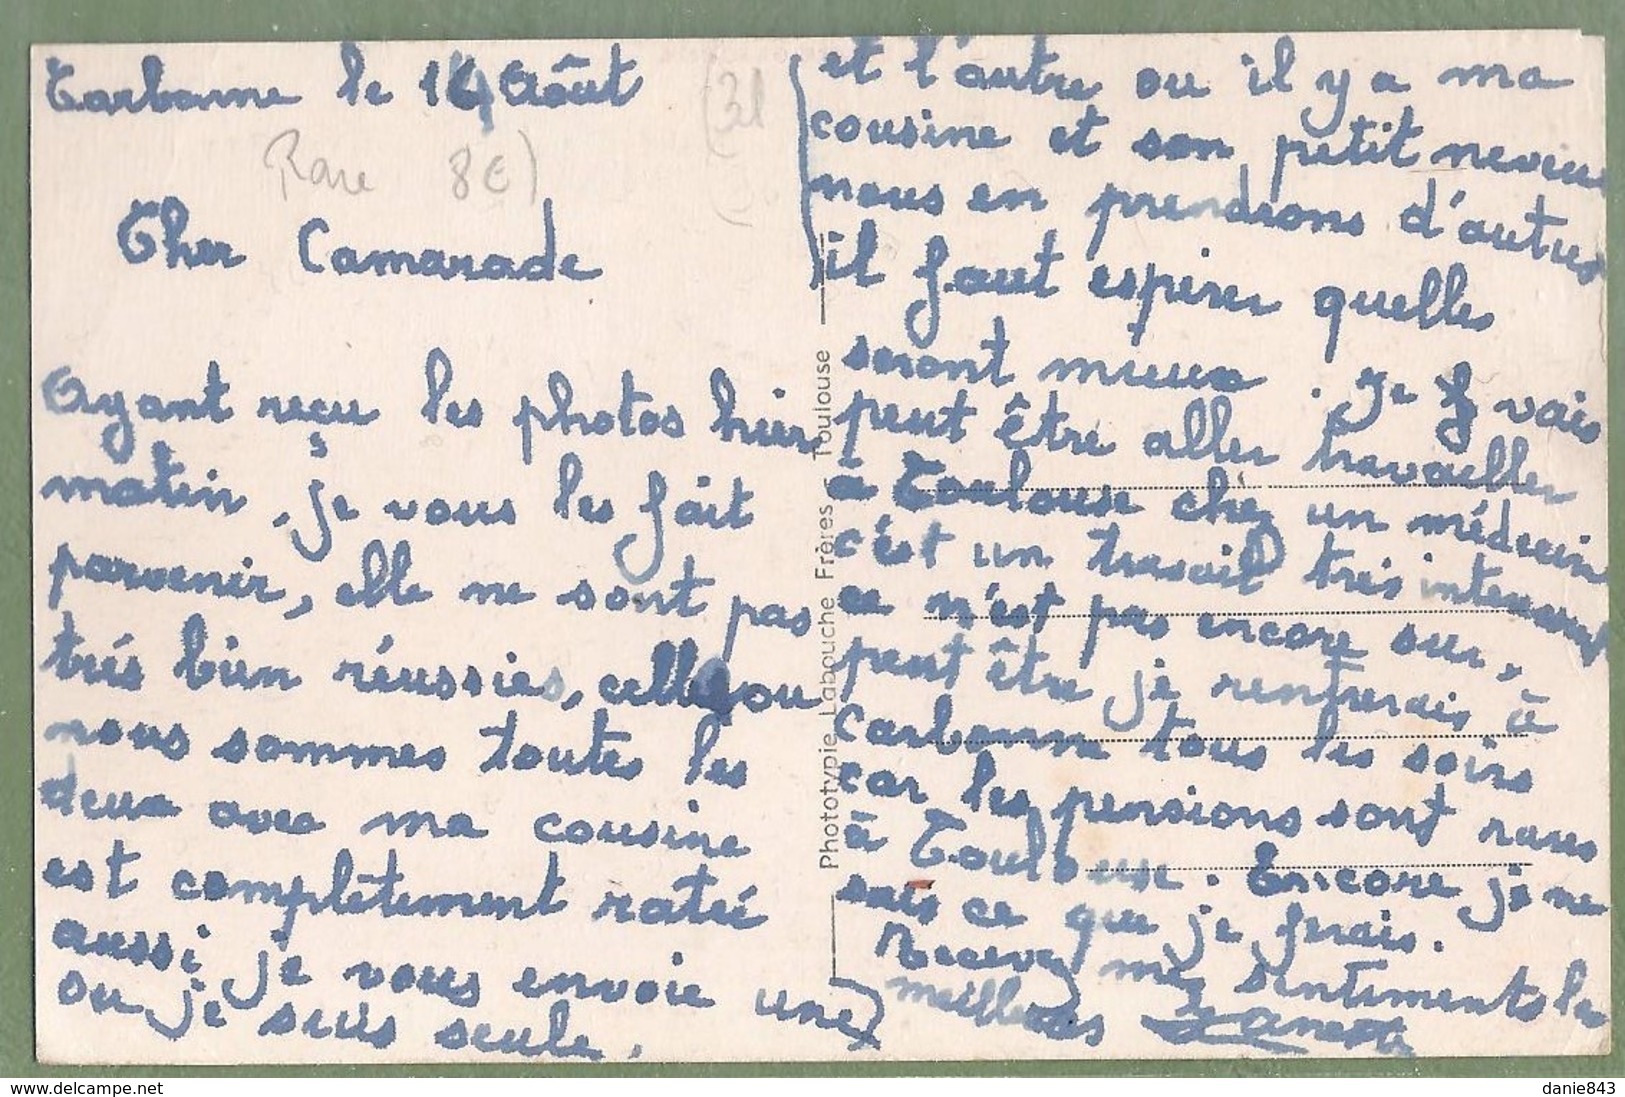 Carbonne le 14 Août
(31
Rare 8€)
Cher Camarade
Ayant reçu les photos hier
matin, je vous les fait
parvenir, elle ne sont pas
trés bien réussies, celle ou
nous sommes toutes les
deux avec ma cousine
est complètement ratée
aussi je vous envoie une
ou je suis seule.
et l'autre ou il y a ma
cousine et son petit neveu
nous en prendrons d'autres
il faut espérer quelles
seront mieux. Je vais
peut être aller travailler
à Toulouse chez un médecin
c'est un travail très interessant
ce n'est pas encore sur,
peut être je rentrerais à
Carbonne tous les soirs
car les pensions sont rares
à Toulouse. Encore je ne
sais ce que je ferais.
Recevez mes sentiments les
meilleurs
Phototypie Labouche Frères - Toulouse
www.delcampe.net
danie843